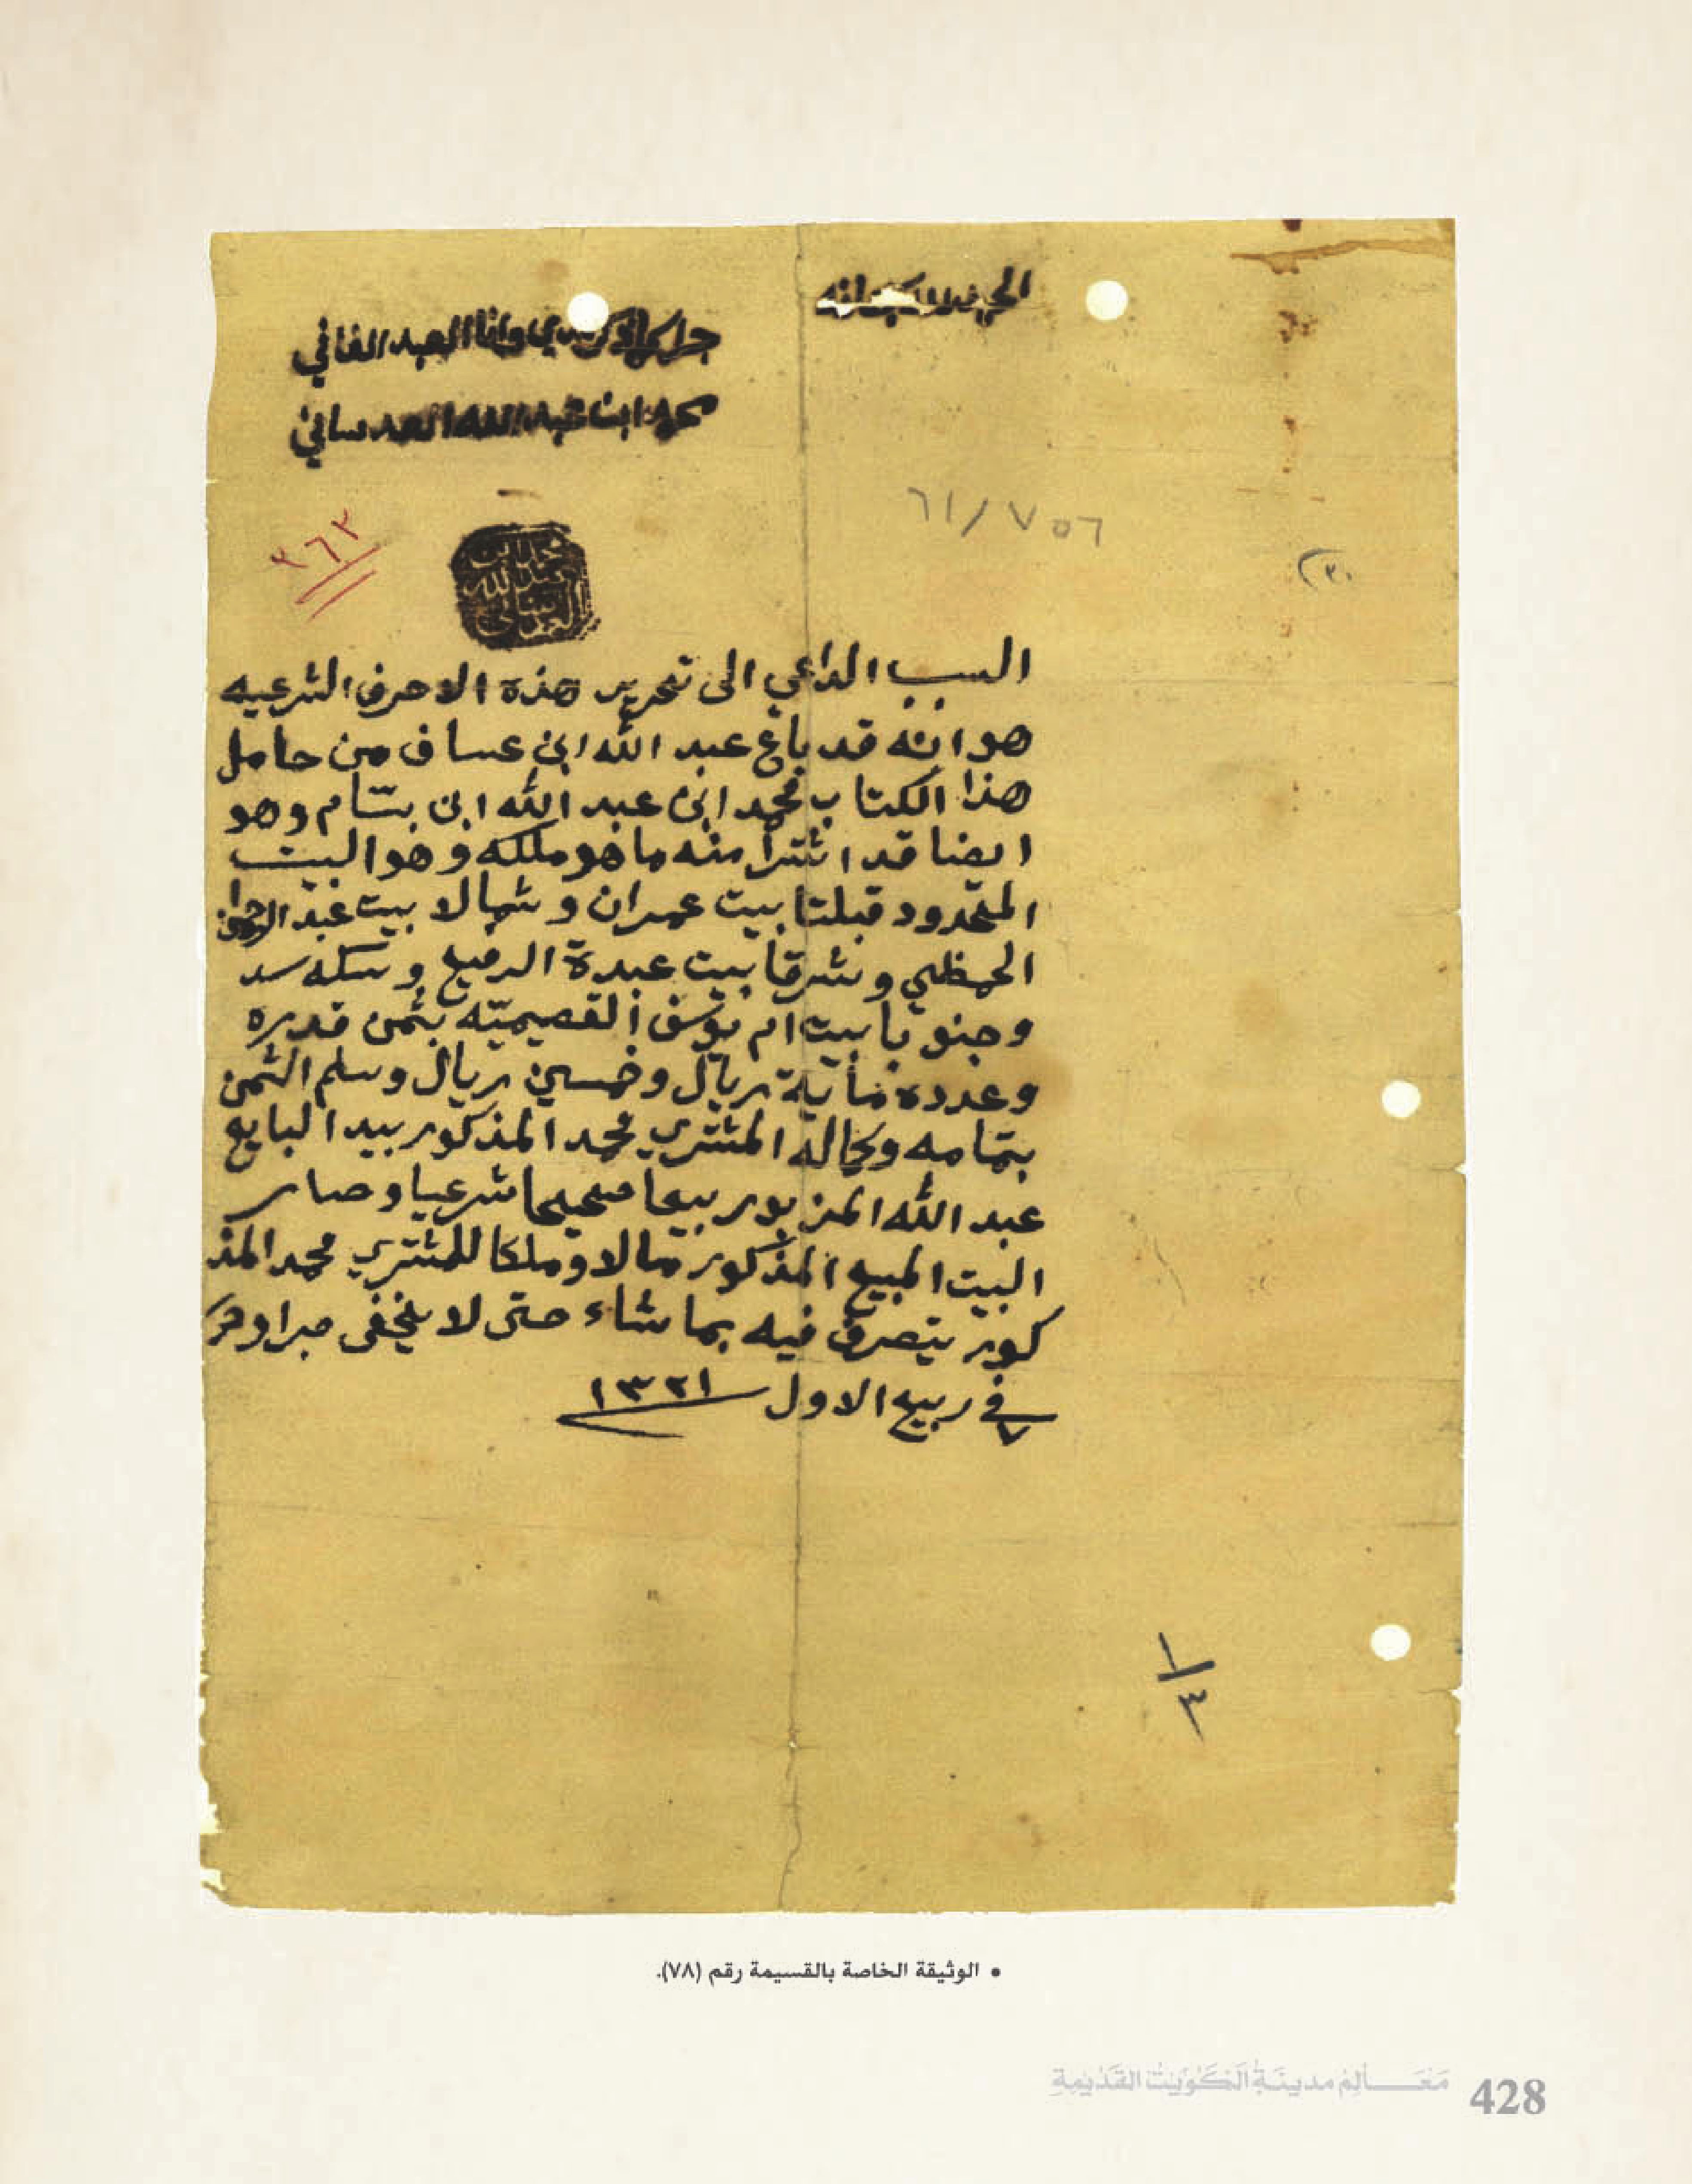 الحمد لله سبحانه
جرا كما ذكر لدي وانا العبد الفاني
محمد ابن عبد الله العدساني
٦١/٧٥٦
٣٦٣
محمد ابن
عبد الله
العدساني
السبب الداعي الى تحرير هذه الاحرف الشرعيه
هو انه قد باع عبد الله ابن عساف من حامل
هذا الكتاب محمد ابن عبد الله ابن بسّام وهو
ايضا قد اشترا منه ما هو ملكه وهو البيت
المحدود قبلتا بيت عمران و شمالا بيت عبد الرحمن
الحمظي و شرقا بيت عبدة الرميح و سكه سد
و جنوبا بيت ام يوسف القصيميّه بثمن قدره
وعدده مأية ريال وخمسين ريال وسلم الثمن
بتمامه وكماله المشتري محمد المذكور بيد البايع
عبد الله المزبور بيعا صحيحا شرعيا وصار
البيت المبيع المذكور مالا وملكا للمشتري محمد المذ
كور يتصرف فيه بما شاء حتى لا يخفى
في ٧ ربيع الاول ١٣٢١
١/٣
• الوثيقة الخاصة بالقسيمة رقم (٧٨).
مَعَالِمُ مدينَةِ الكُوَيْتِ القَدِيمَةِ 428